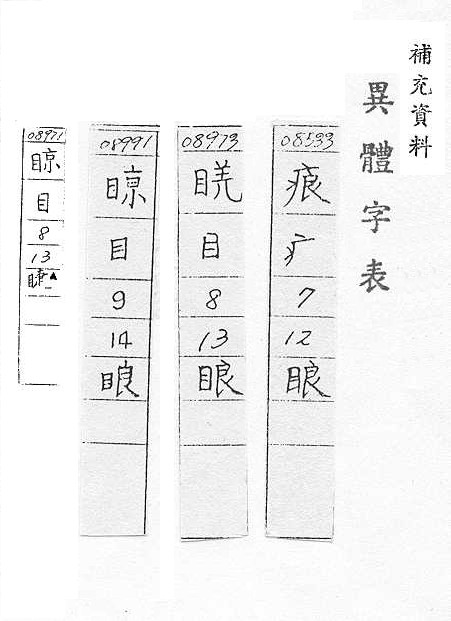 補充資料
異體字表
08533
㾗
疒
7
12
䀶
08973
目
8
13
䀶
08991
目
9
14
䀶
08971
目
8
13